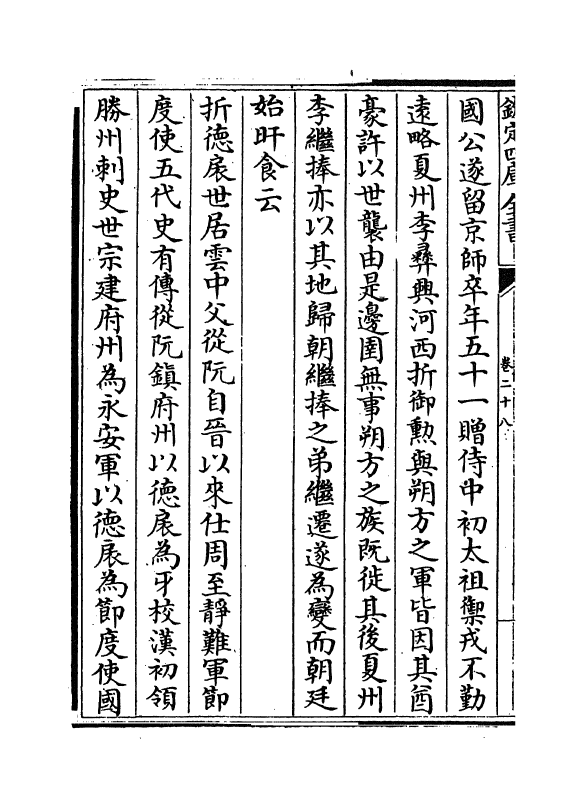 欽定四庫全書
卷二十八
國公遂留京師卒年五十一贈侍中初太祖禦戎不勤
遠略夏州李彞興河西折御勲與朔方之軍皆因其酋
豪許以世襲由是邊圉無事朔方之族既徙其後夏州
李繼捧亦以其地歸朝繼捧之弟繼遷遂為變而朝廷
始旰食云
折德扆世居雲中父從阮自晉以來仕周至靜難軍節
度使五代史有傳從阮鎮府州以德扆為牙校漢初領
勝州刺史世宗建府州為永安軍以德扆為節度使國